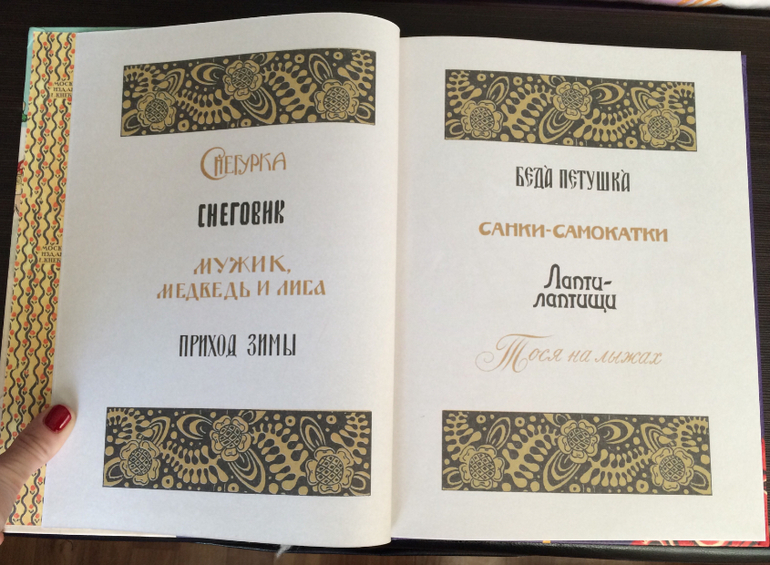 Снегурка
СНЕГОВИК
МУЖИК,
МЕДВЕДЬ И ЛИСА
ПРИХОД ЗИМЫ
БЕДА ПЕТУШКА
САНКИ-САМОКАТКИ
Лапти-
лаптищи
Тося на лыжах